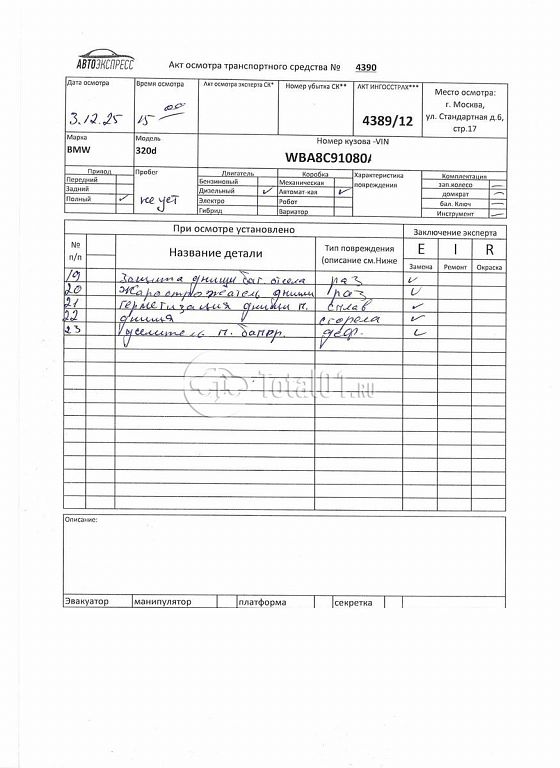 АВТОЭКСПРЕСС
Акт осмотра транспортного средства № 4390
Дата осмотра
3.12.25
Время осмотра
15 00
Акт осмотра эксперта СК*
Номер убытка СК**
АКТ ИНГОССТРАХ***
4389/12
Место осмотра:
г. Москва,
ул. Стандартная д.6,
стр.17
Марка
BMW
Модель
320d
Номер кузова -VIN
WBA8C91080
Привод
Передний
Задний
Полный ✓
Пробег
Двигатель
Бензиновый
Дизельный ✓
Электро
Гибрид
Коробка
Механическая
Автомат-кая ✓
Робот
Вариатор
Характеристика
повреждения
Комплектация
зап.колесо
домкрат
бал. Ключ
Инструмент
При осмотре установлено
Заключение эксперта
№
п/п
Название детали
Тип повреждения
(описание см.Ниже
E I R
Замена Ремонт Окраска
19 Защита днища раз ✓
20 днища раз ✓
21 Герметизация днища п. сплав ✓
22 днища сгорела ✓
23 усилитель п. бампр. деф. ✓
Total01.RU
Описание:
Эвакуатор манипулятор платформа секретка